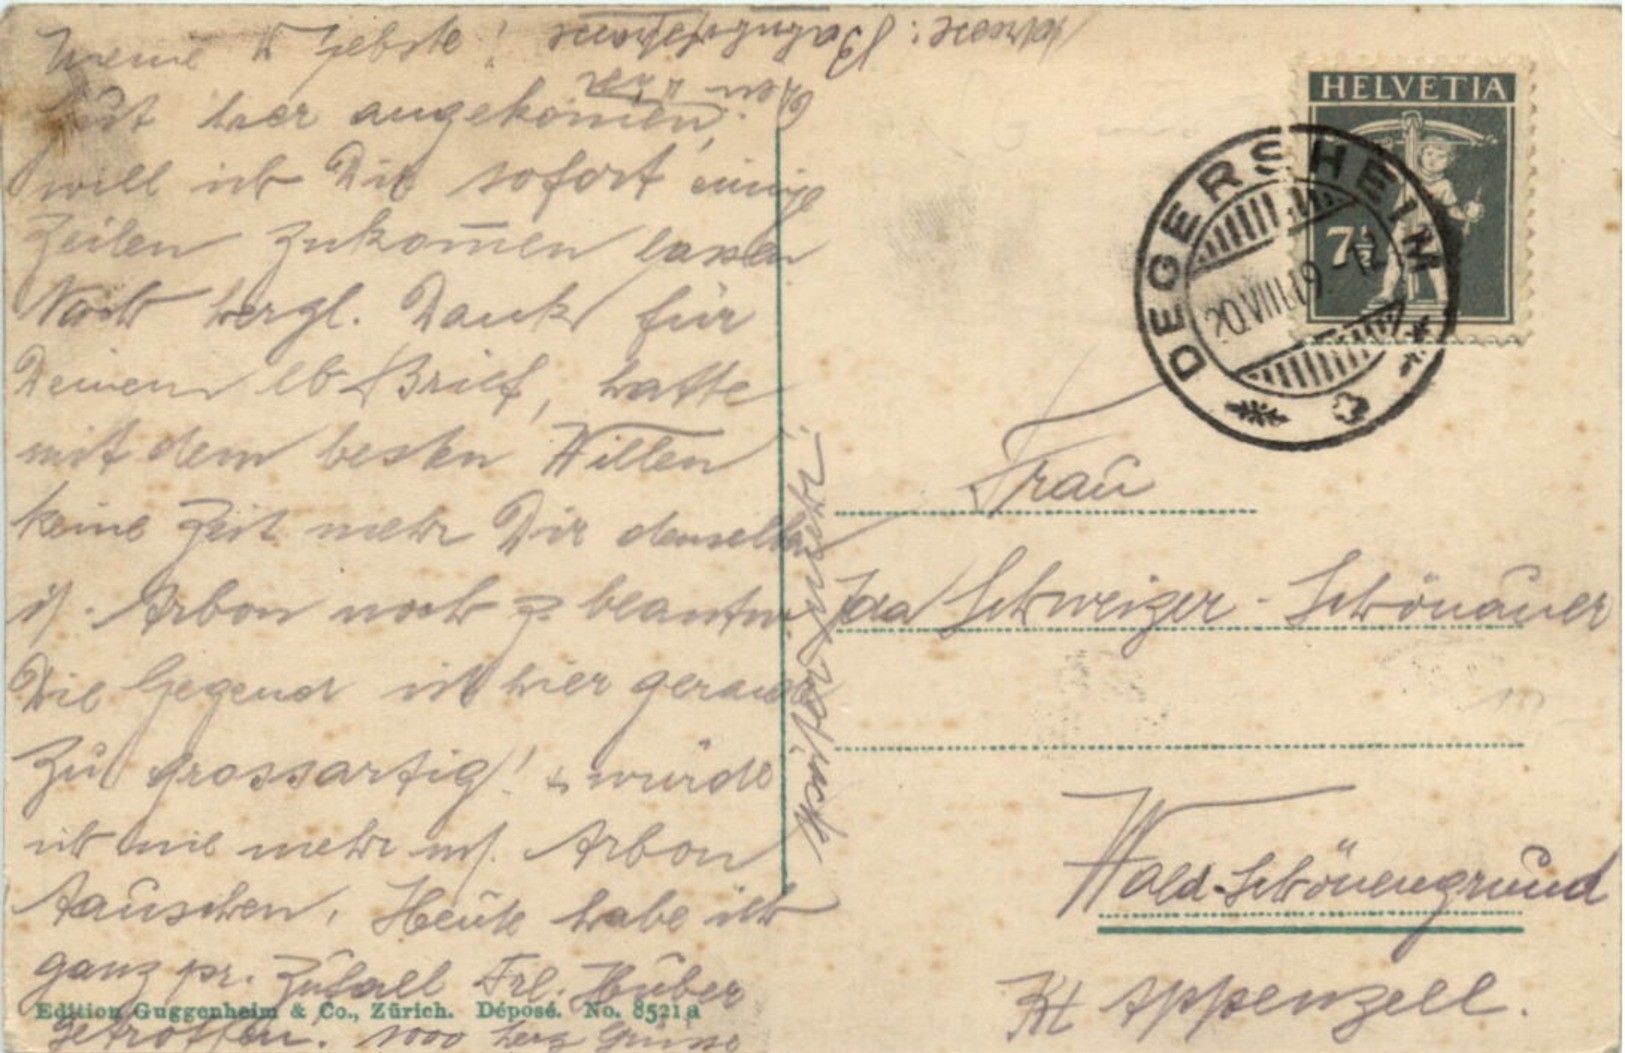 Meine Liebste!
hier angekommen,
will ich Dir sofort einige
Zeilen zukom̄en lassen
Noch herzl. Dank für
Deinen lb Brief, hatte
mit dem besten Willen
keine Zeit mehr Dir denselben
i/. Arbon noch z beantw.
Die Gegend ist hier gerade
zu grossartig! & würde
ich nie mehr m/. Arbon
tauschen. Heute habe ich
ganz pr. Zufall Frl. Huber
getroffen! 1000 herz Grüsse
HELVETIA
7½
DEGERSHEIM
20.VIII.19
Frau
Ida Schweizer-Schönauer
Wald-Schönengrund
Kt Appenzell.
Edition Guggenheim & Co., Zürich. Déposé. No. 8521a